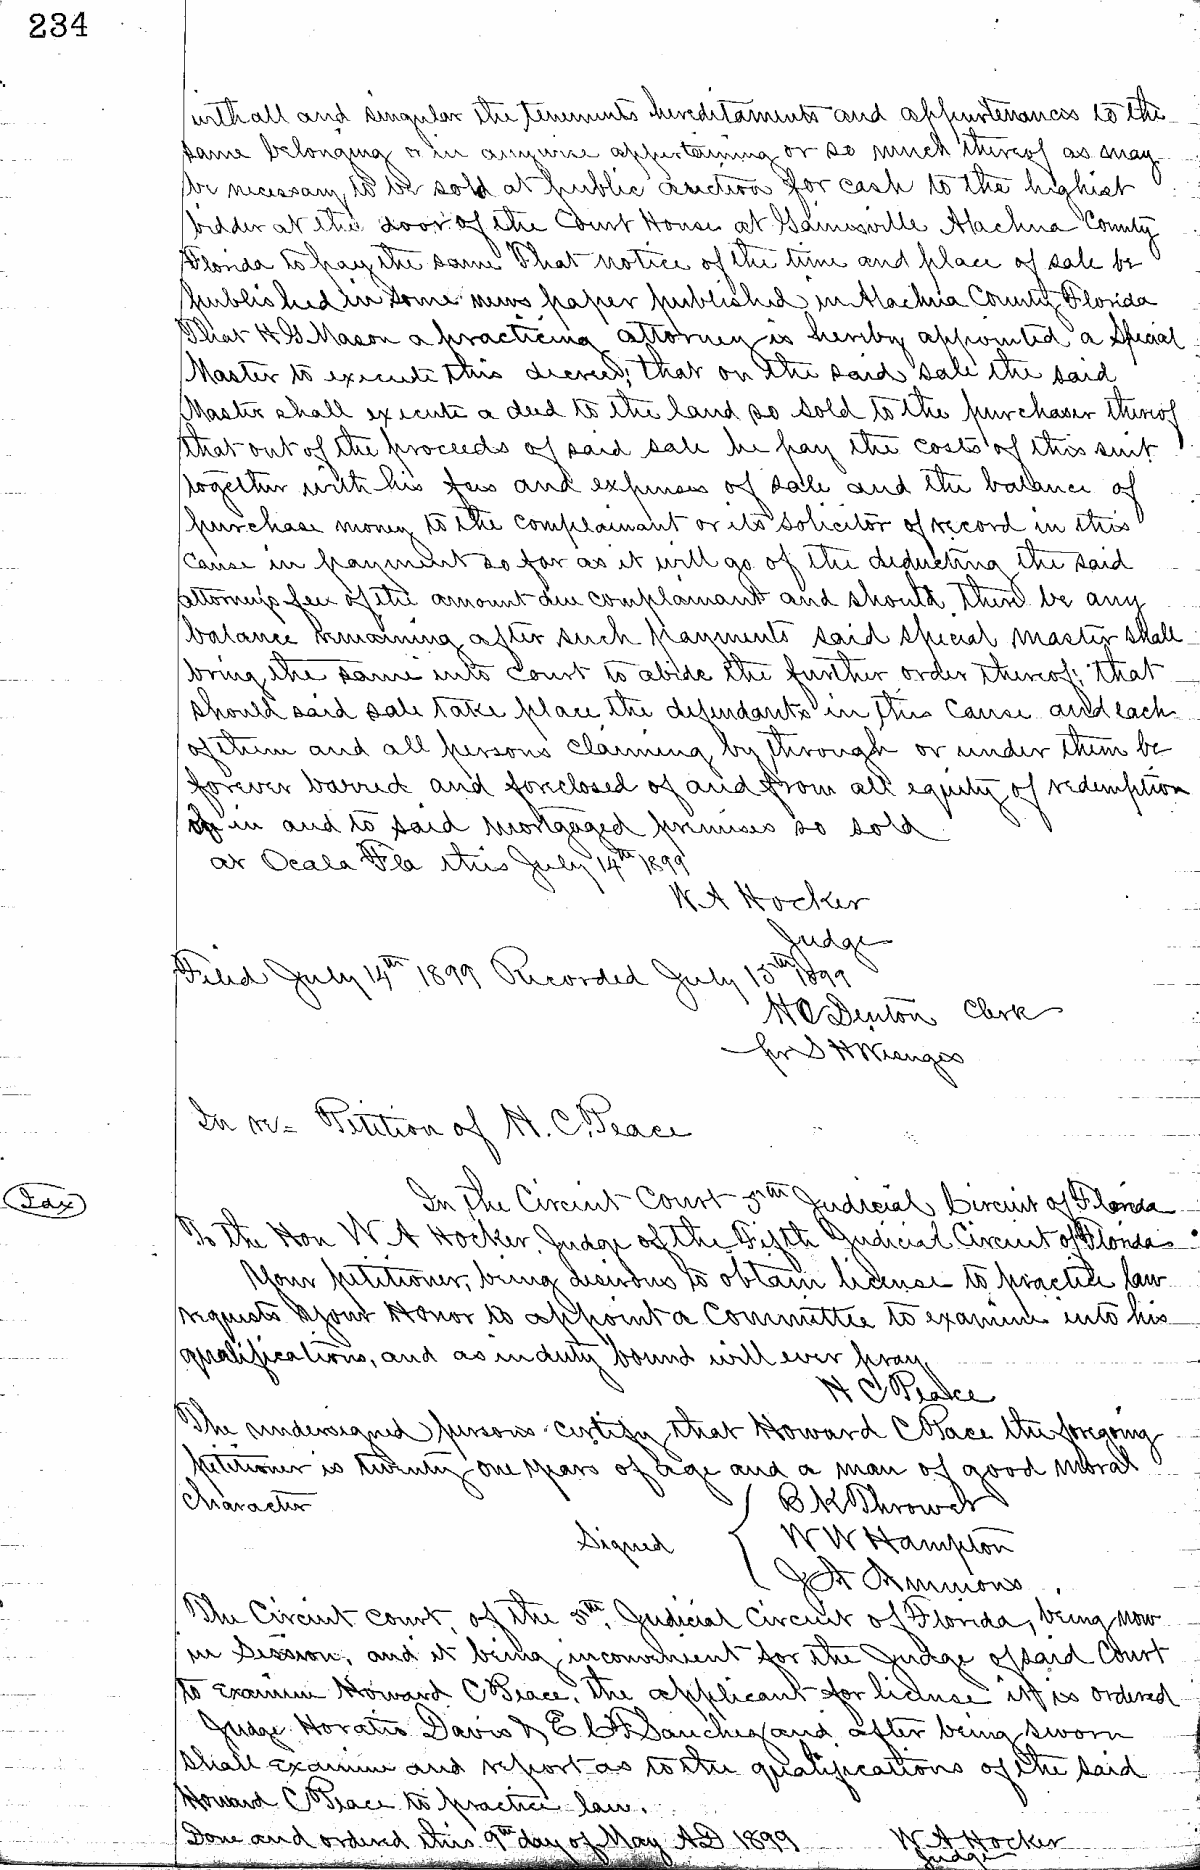 234
with all and singular the tenements hereditaments and appurtenances to the
same belonging or in anywise appertaining or so much thereof as may
be necessary to be sold at public auction for cash to the highest
bidder at the door of the Court House at Gainesville Alachua County
Florida to pay the same That notice of the time and place of sale be
published in some news paper published in Alachua County Florida
That H G Mason a practicing attorney is hereby appointed a Special
Master to execute this decree; that on the said sale the said
Master shall execute a deed to the land so sold to the purchaser thereof
that out of the proceeds of said sale he pay the costs of this suit
together with his fees and expenses of sale and the balance of
purchase money to the complainant or its solicitor of record in this
cause in payment so far as it will go of the deducting the said
attorneys fee of the amount due complainant and should there be any
balance remaining after such payments said special master shall
bring the same into court to abide the further order thereof; that
should said sale take place the defendants in this cause and each
of them and all persons claiming by through or under them be
forever barred and foreclosed of and from all equity of redemption
of in and to said mortgaged premises so sold
at Ocala Fla this July 14th 1899
W A Hocker
Judge
Filed July 14th 1899 Recorded July 15th 1899
H C Denton Clerk
pr S H Wienges
In re= Petition of H. C. Peace
Tax
In the Circuit Court 5th Judicial Circuit of Florida
To the Hon W A Hocker, Judge of the Fifth Judicial Circuit of Florida
Your petitioner, being desirous to obtain license to practice law
requests your Honor to appoint a Committee to examine into his
qualifications, and as in duty bound will ever pray
H C Peace
The undersigned persons certify that Howard C Peace the foregoing
petitioner is twenty one years of age and a man of good moral
character
B K Thrower
Signed { W W Hampton
J A Ammons
The Circuit court, of the 5th, Judicial Circuit of Florida, being now
in Session, and it being inconvenient for the Judge of said Court
to examine Howard C Peace, the applicant for license it is ordered
Judge Horatio Davis & E C F Sanchez and after being sworn
shall examine and report as to the qualifications of the said
Howard C Peace to practice law.
Done and ordered this 9th day of May AD 1899 W A Hocker
Judge